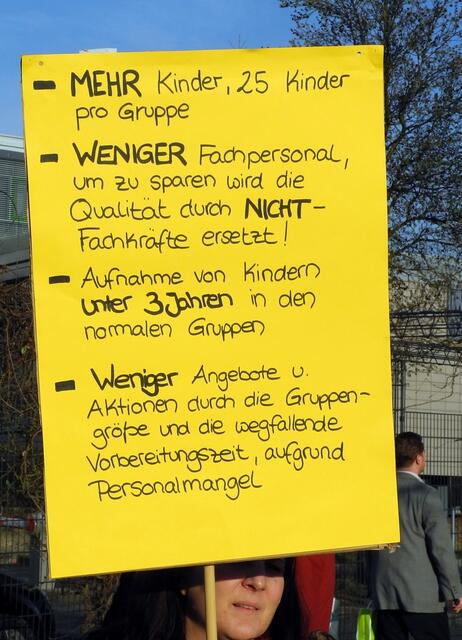 - MEHR Kinder, 25 Kinder
pro Gruppe
- WENIGER Fachpersonal,
um zu sparen wird die
Qualität durch NICHT-
Fachkräfte ersetzt!
- Aufnahme von Kindern
unter 3 Jahren in den
normalen Gruppen
- Weniger Angebote u.
Aktionen durch die Gruppen-
größe und die wegfallende
Vorbereitungszeit, aufgrund
Personalmangel